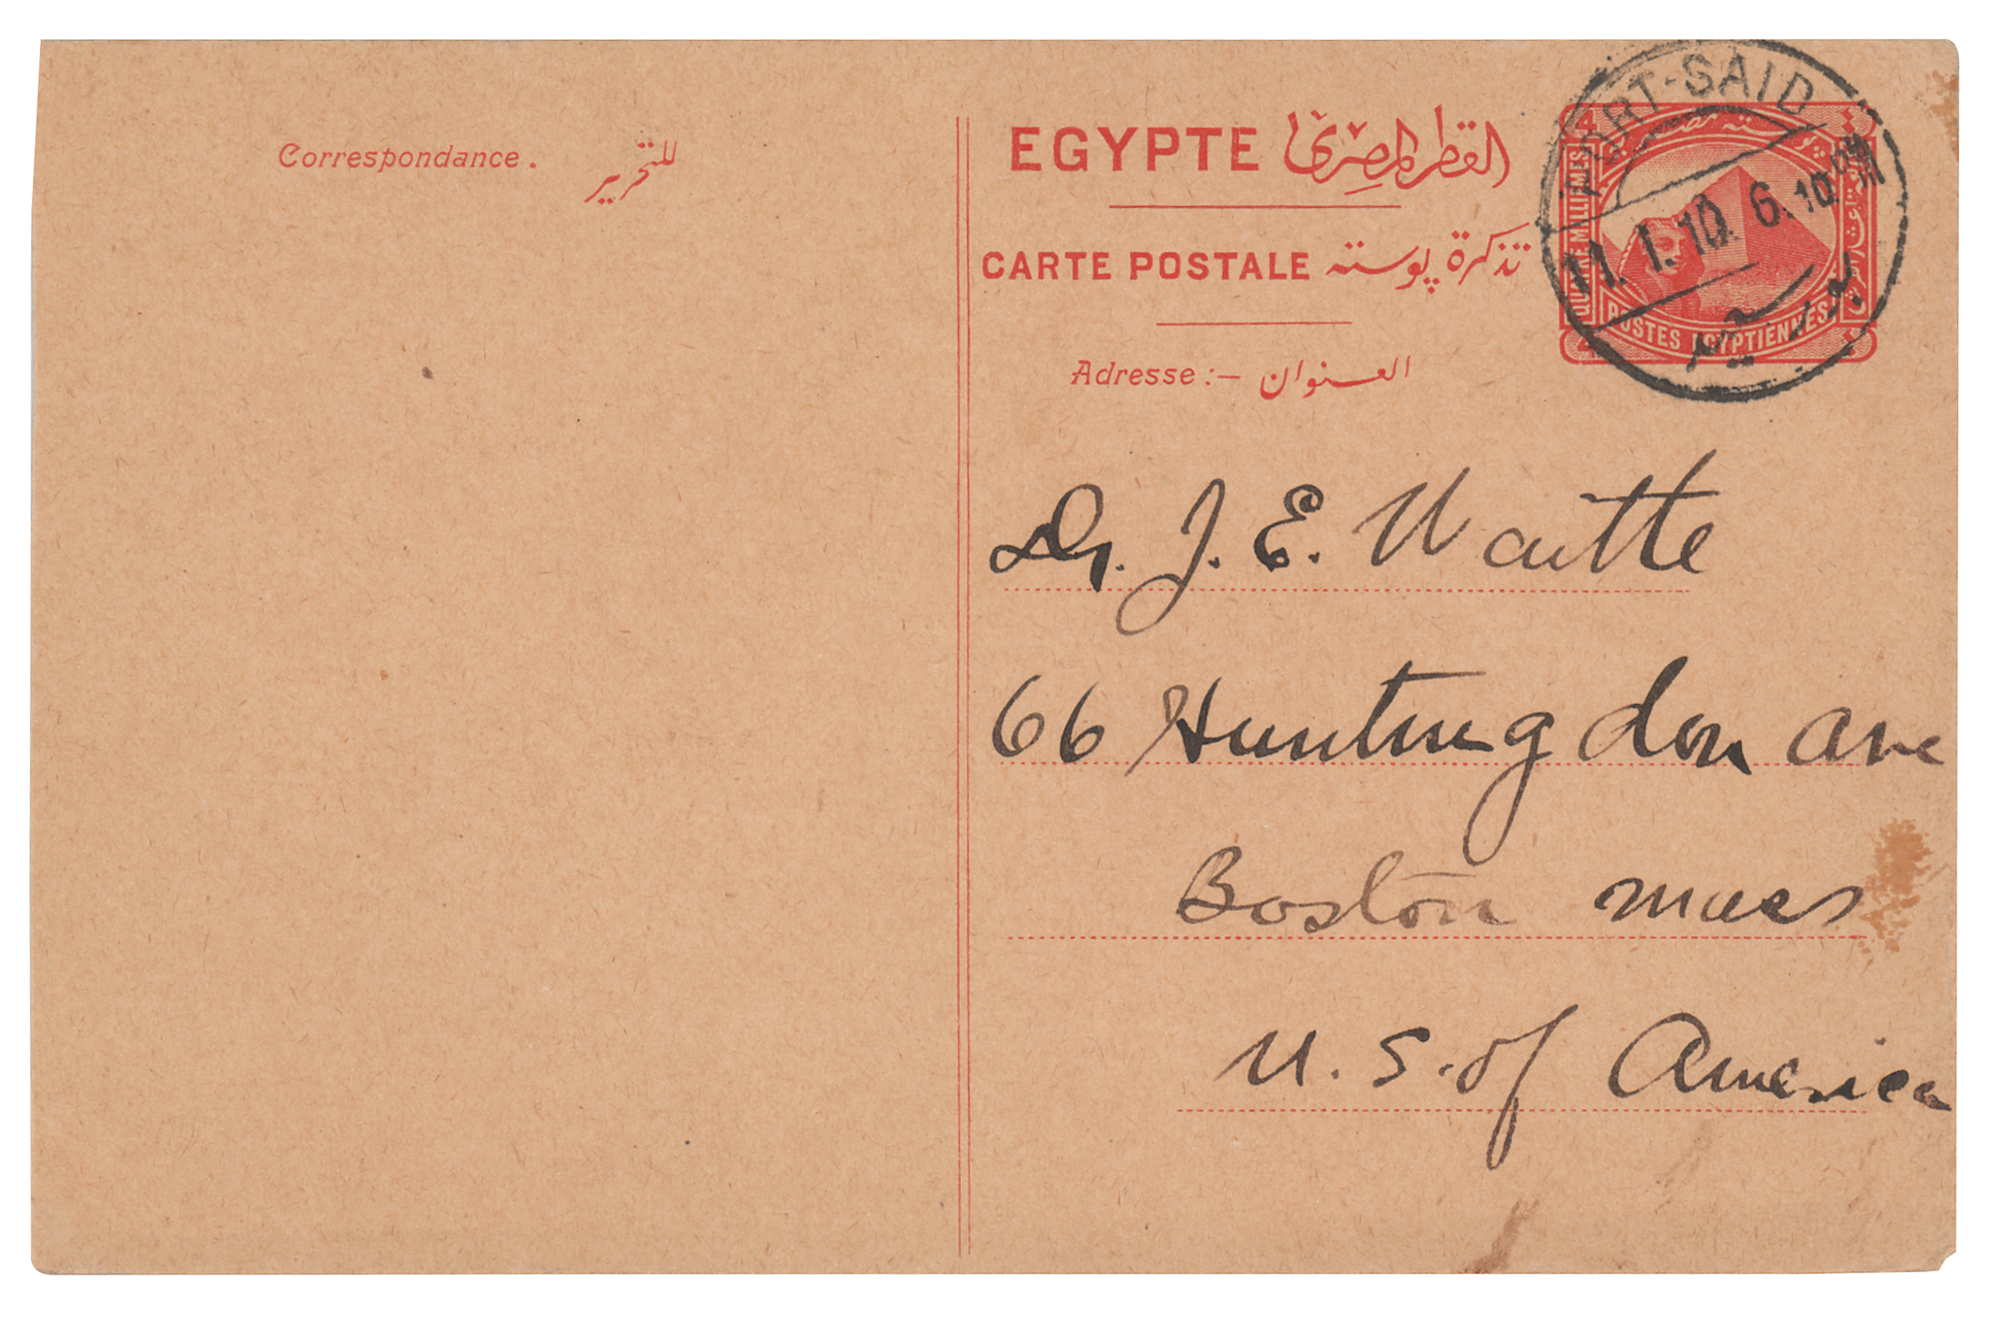 Correspondance. للتحرير
EGYPTE القطر المصرى
CARTE POSTALE تذكرة پوسته
Adresse :— العنوان
PORT-SAID
11. 1. 10. 6.10 PM
بور سعيد
4
QUATRE MILLIEMES
POSTES EGYPTIENNES
Dr. J. E. Waitte
66 Huntingdon ave
Boston Mass
U. S. of America